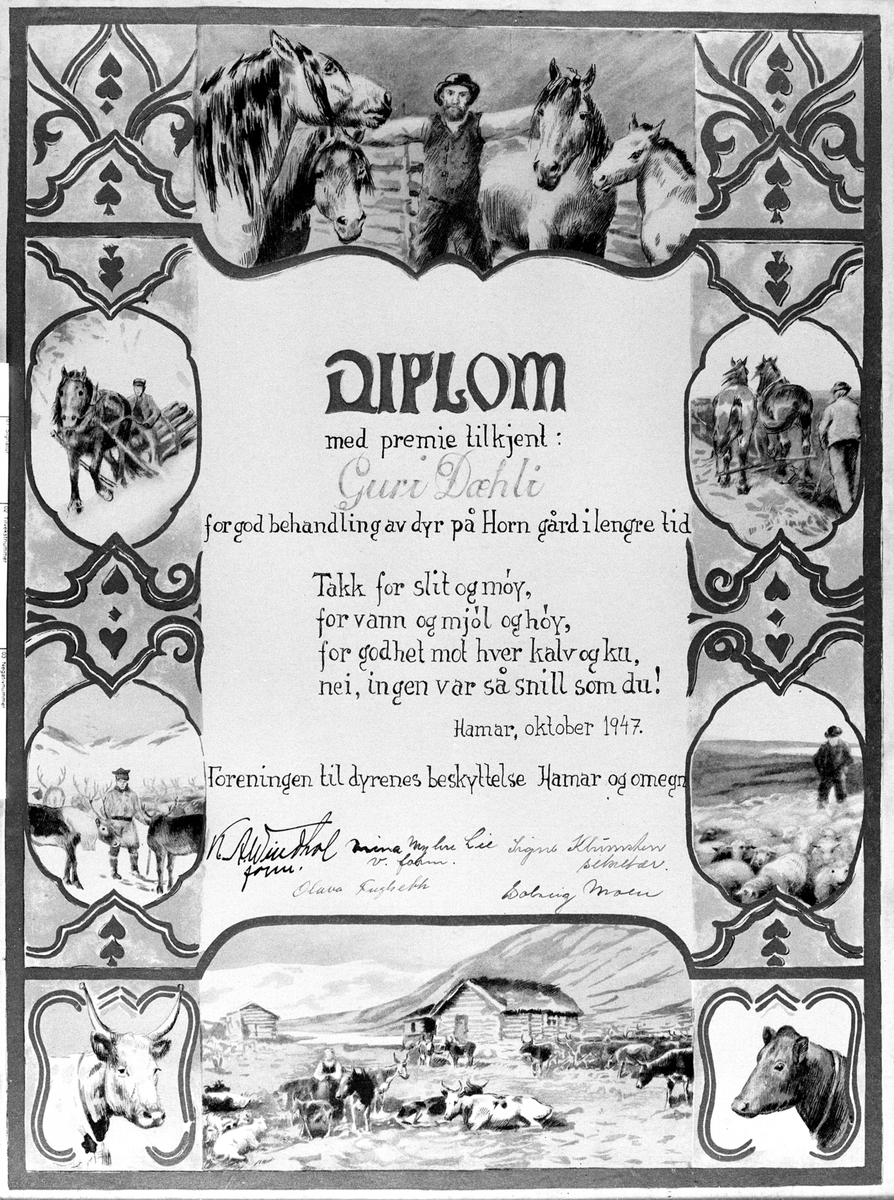 DIPLOM
med premie tilkjent:
Guri Dæhli
for god behandling av dyr på Horn gård i lengre tid
Takk for slit og möy,
for vann og mjöl og höy,
for godhet mot hver kalv og ku,
nei, ingen var så snill som du!
Hamar, oktober 1947.
Foreningen til dyrenes beskyttelse Hamar og omegn
Mina Myhre Lie Signe
form. v. form. sekretær.
Olava Fuglseth Solveig Moen